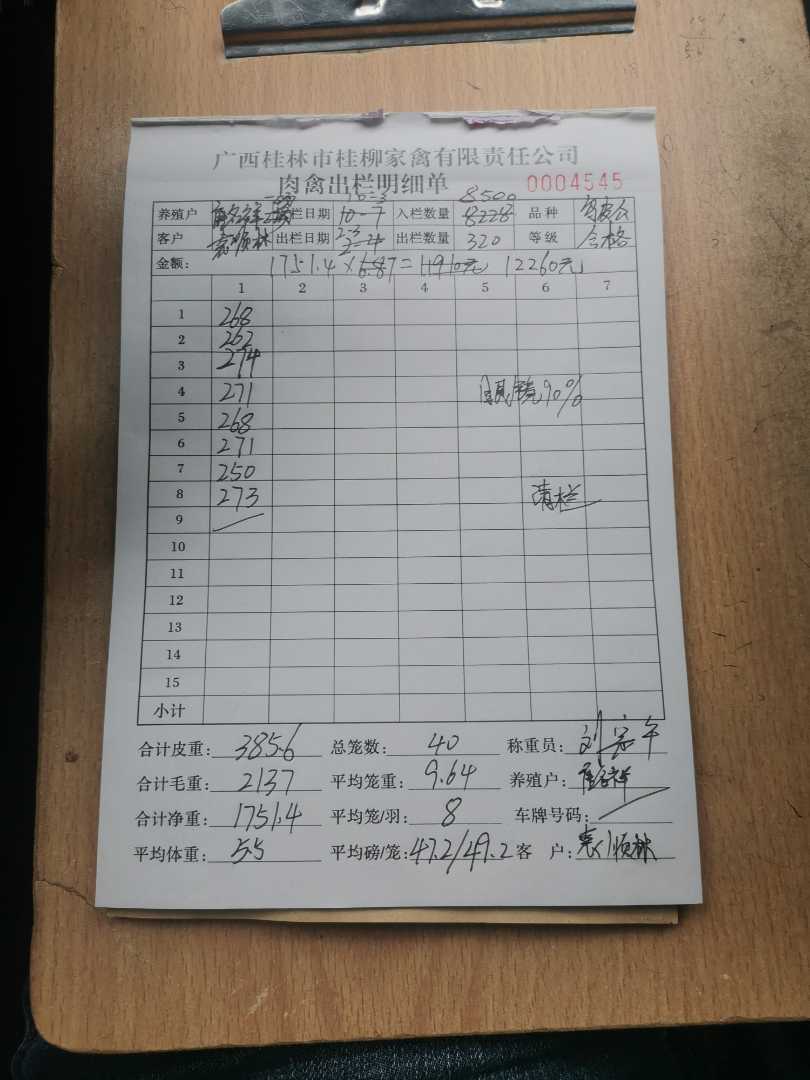 广西桂林市桂柳家禽有限责任公司
肉禽出栏明细单 0004545
10-3 8500
养殖户 入栏日期 10-7 入栏数量 8228 品种
客户 袁顺林 出栏日期 2-3 2-4 出栏数量 320 等级 合格
金额: 1751.4×6.87= 12260元
1 2 3 4 5 6 7
1 268
2 262
3 274
4 271 90%
5 268
6 271
7 250
8 273 清栏
9
10
11
12
13
14
15
小计
合计皮重: 385.6 总笼数: 40 称重员:
合计毛重: 2137 平均笼重: 9.64 养殖户:
合计净重: 1751.4 平均笼/羽: 8 车牌号码:
平均体重: 5.5 平均磅/笼: 47.2/49.2 客 户: 袁顺林